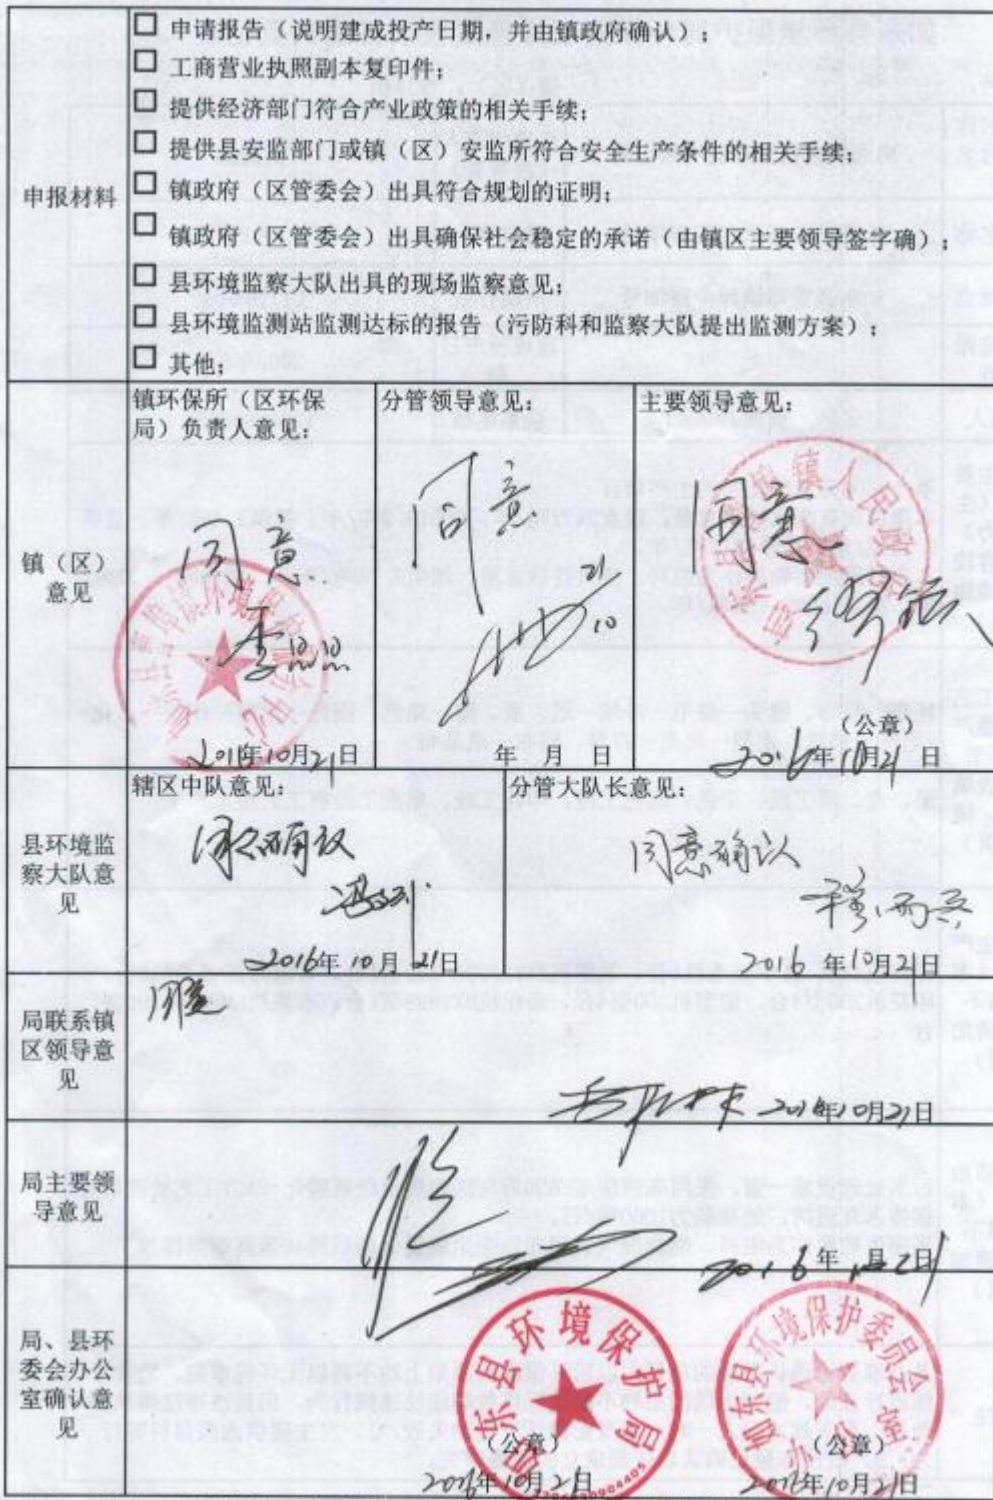 申报材料
□ 申请报告（说明建成投产日期，并由镇政府确认）；
□ 工商营业执照副本复印件；
□ 提供经济部门符合产业政策的相关手续；
□ 提供县安监部门或镇（区）安监所符合安全生产条件的相关手续；
□ 镇政府（区管委会）出具符合规划的证明；
□ 镇政府（区管委会）出具确保社会稳定的承诺（由镇区主要领导签字确）；
□ 县环境监察大队出具的现场监察意见；
□ 县环境监测站监测达标的报告（污防科和监察大队提出监测方案）；
□ 其他；
镇（区）
意见
镇环保所（区环保
局）负责人意见：
同意
2016年10月21日
分管领导意见：
同意
21/10
年 月 日
主要领导意见：
同意
（公章）
2016年10月21日
县环境监
察大队意
见
辖区中队意见：
2016年10月21日
分管大队长意见：
同意确认
2016年10月21日
局联系镇
区领导意
见
同意
2016年10月21日
局主要领
导意见
2016年 月 日
局、县环
委会办公
室确认意
见
如东县环境保护局
（公章）
2016年10月21日
如东县环境保护委员会办公室
（公章）
2016年10月21日